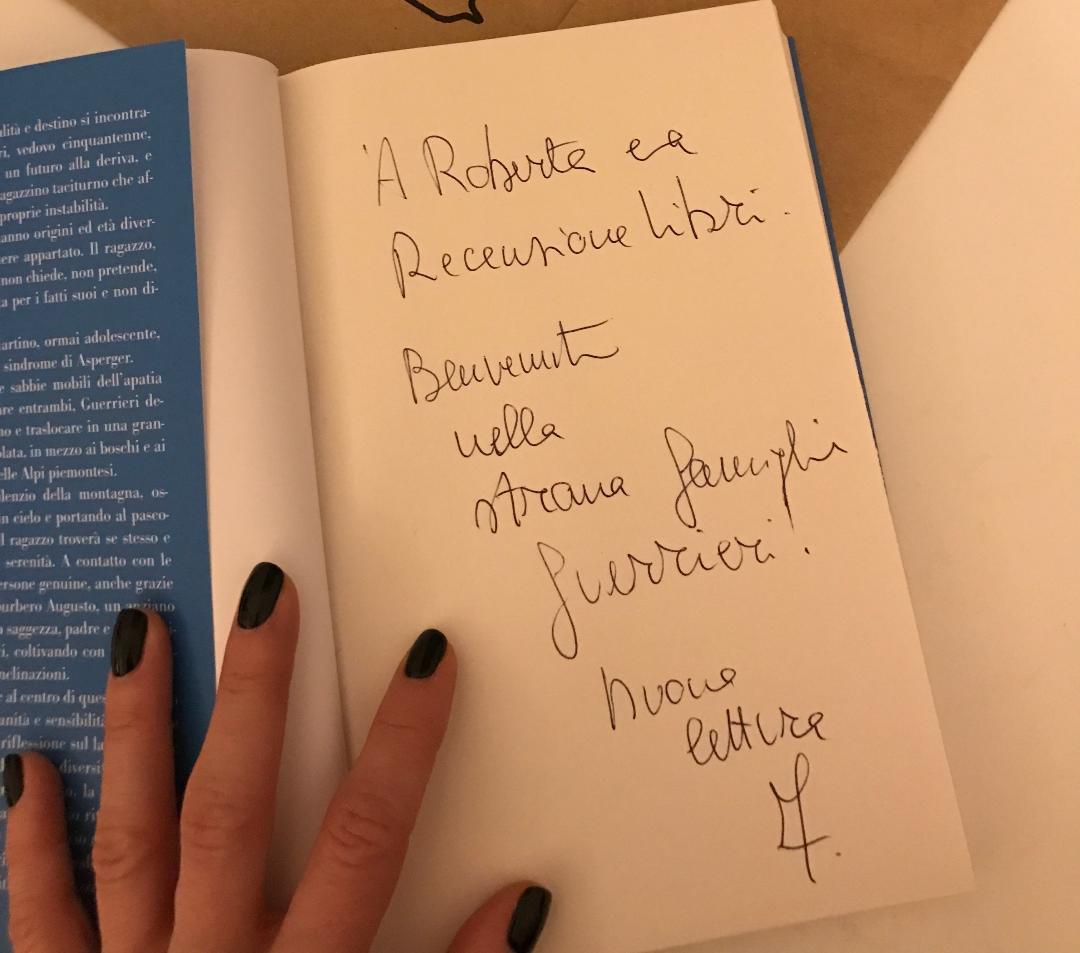 lità e destino si incontra-
ri, vedovo cinquantenne,
un futuro alla deriva, e
agazzino taciturno che af-
proprie instabilità.
anno origini ed età diver-
ere appartato. Il ragazzo,
non chiede, non pretende,
a per i fatti suoi e non di-
artino, ormai adolescente,
sindrome di Asperger.
e sabbie mobili dell'apatia
re entrambi, Guerrieri de-
no e traslocare in una gran-
lata, in mezzo ai boschi e ai
elle Alpi piemontesi.
lenzio della montagna, os-
n cielo e portando al pasco-
l ragazzo troverà se stesso e
serenità. A contatto con le
ersone genuine, anche grazie
burbero Augusto, un anziano
saggezza, padre e
i, coltivando con
nclinazioni.
al centro di ques
anità e sensibilit
riflessione sul la
diversi
la
A Roberta e a
Recensione libri.
Benvenuti
nella
strana famiglia
Guerrieri!
Buona
lettura